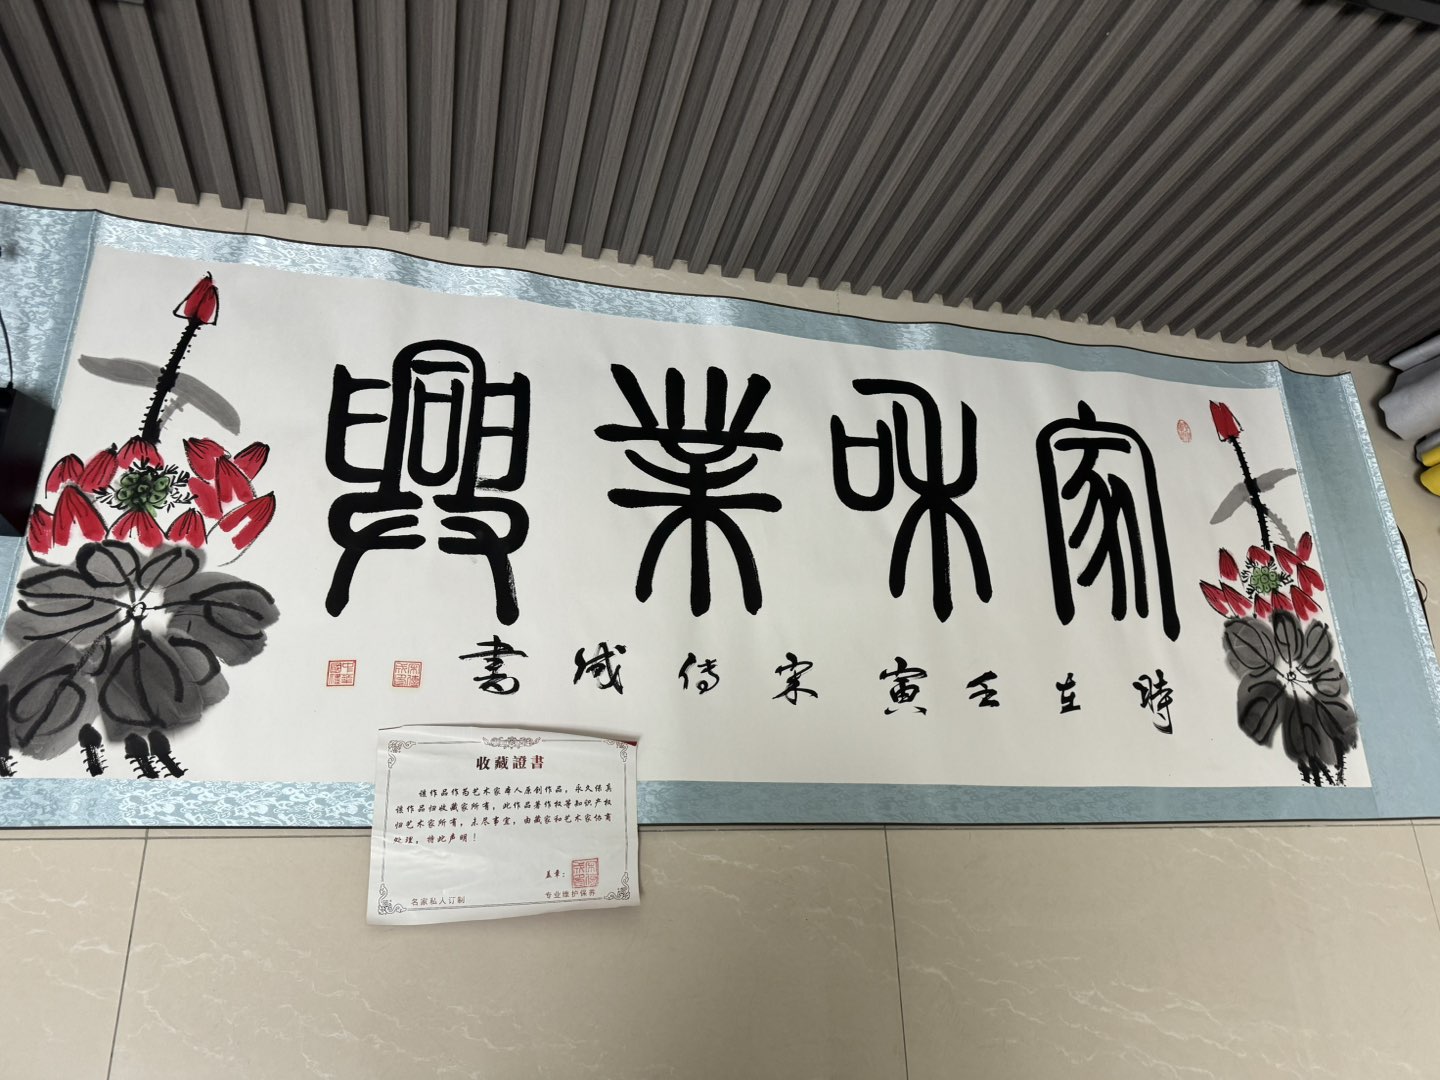 家和業興
時在壬寅宋传書
收藏證書
该作品作为艺术家本人原创作品，永久保真
该作品归收藏家所有，此作品著作权等知识产权
归艺术家所有，未尽事宜，由藏家和艺术家协商
处理，特此声明！
盖章：
名家私人订制 专业维护保养